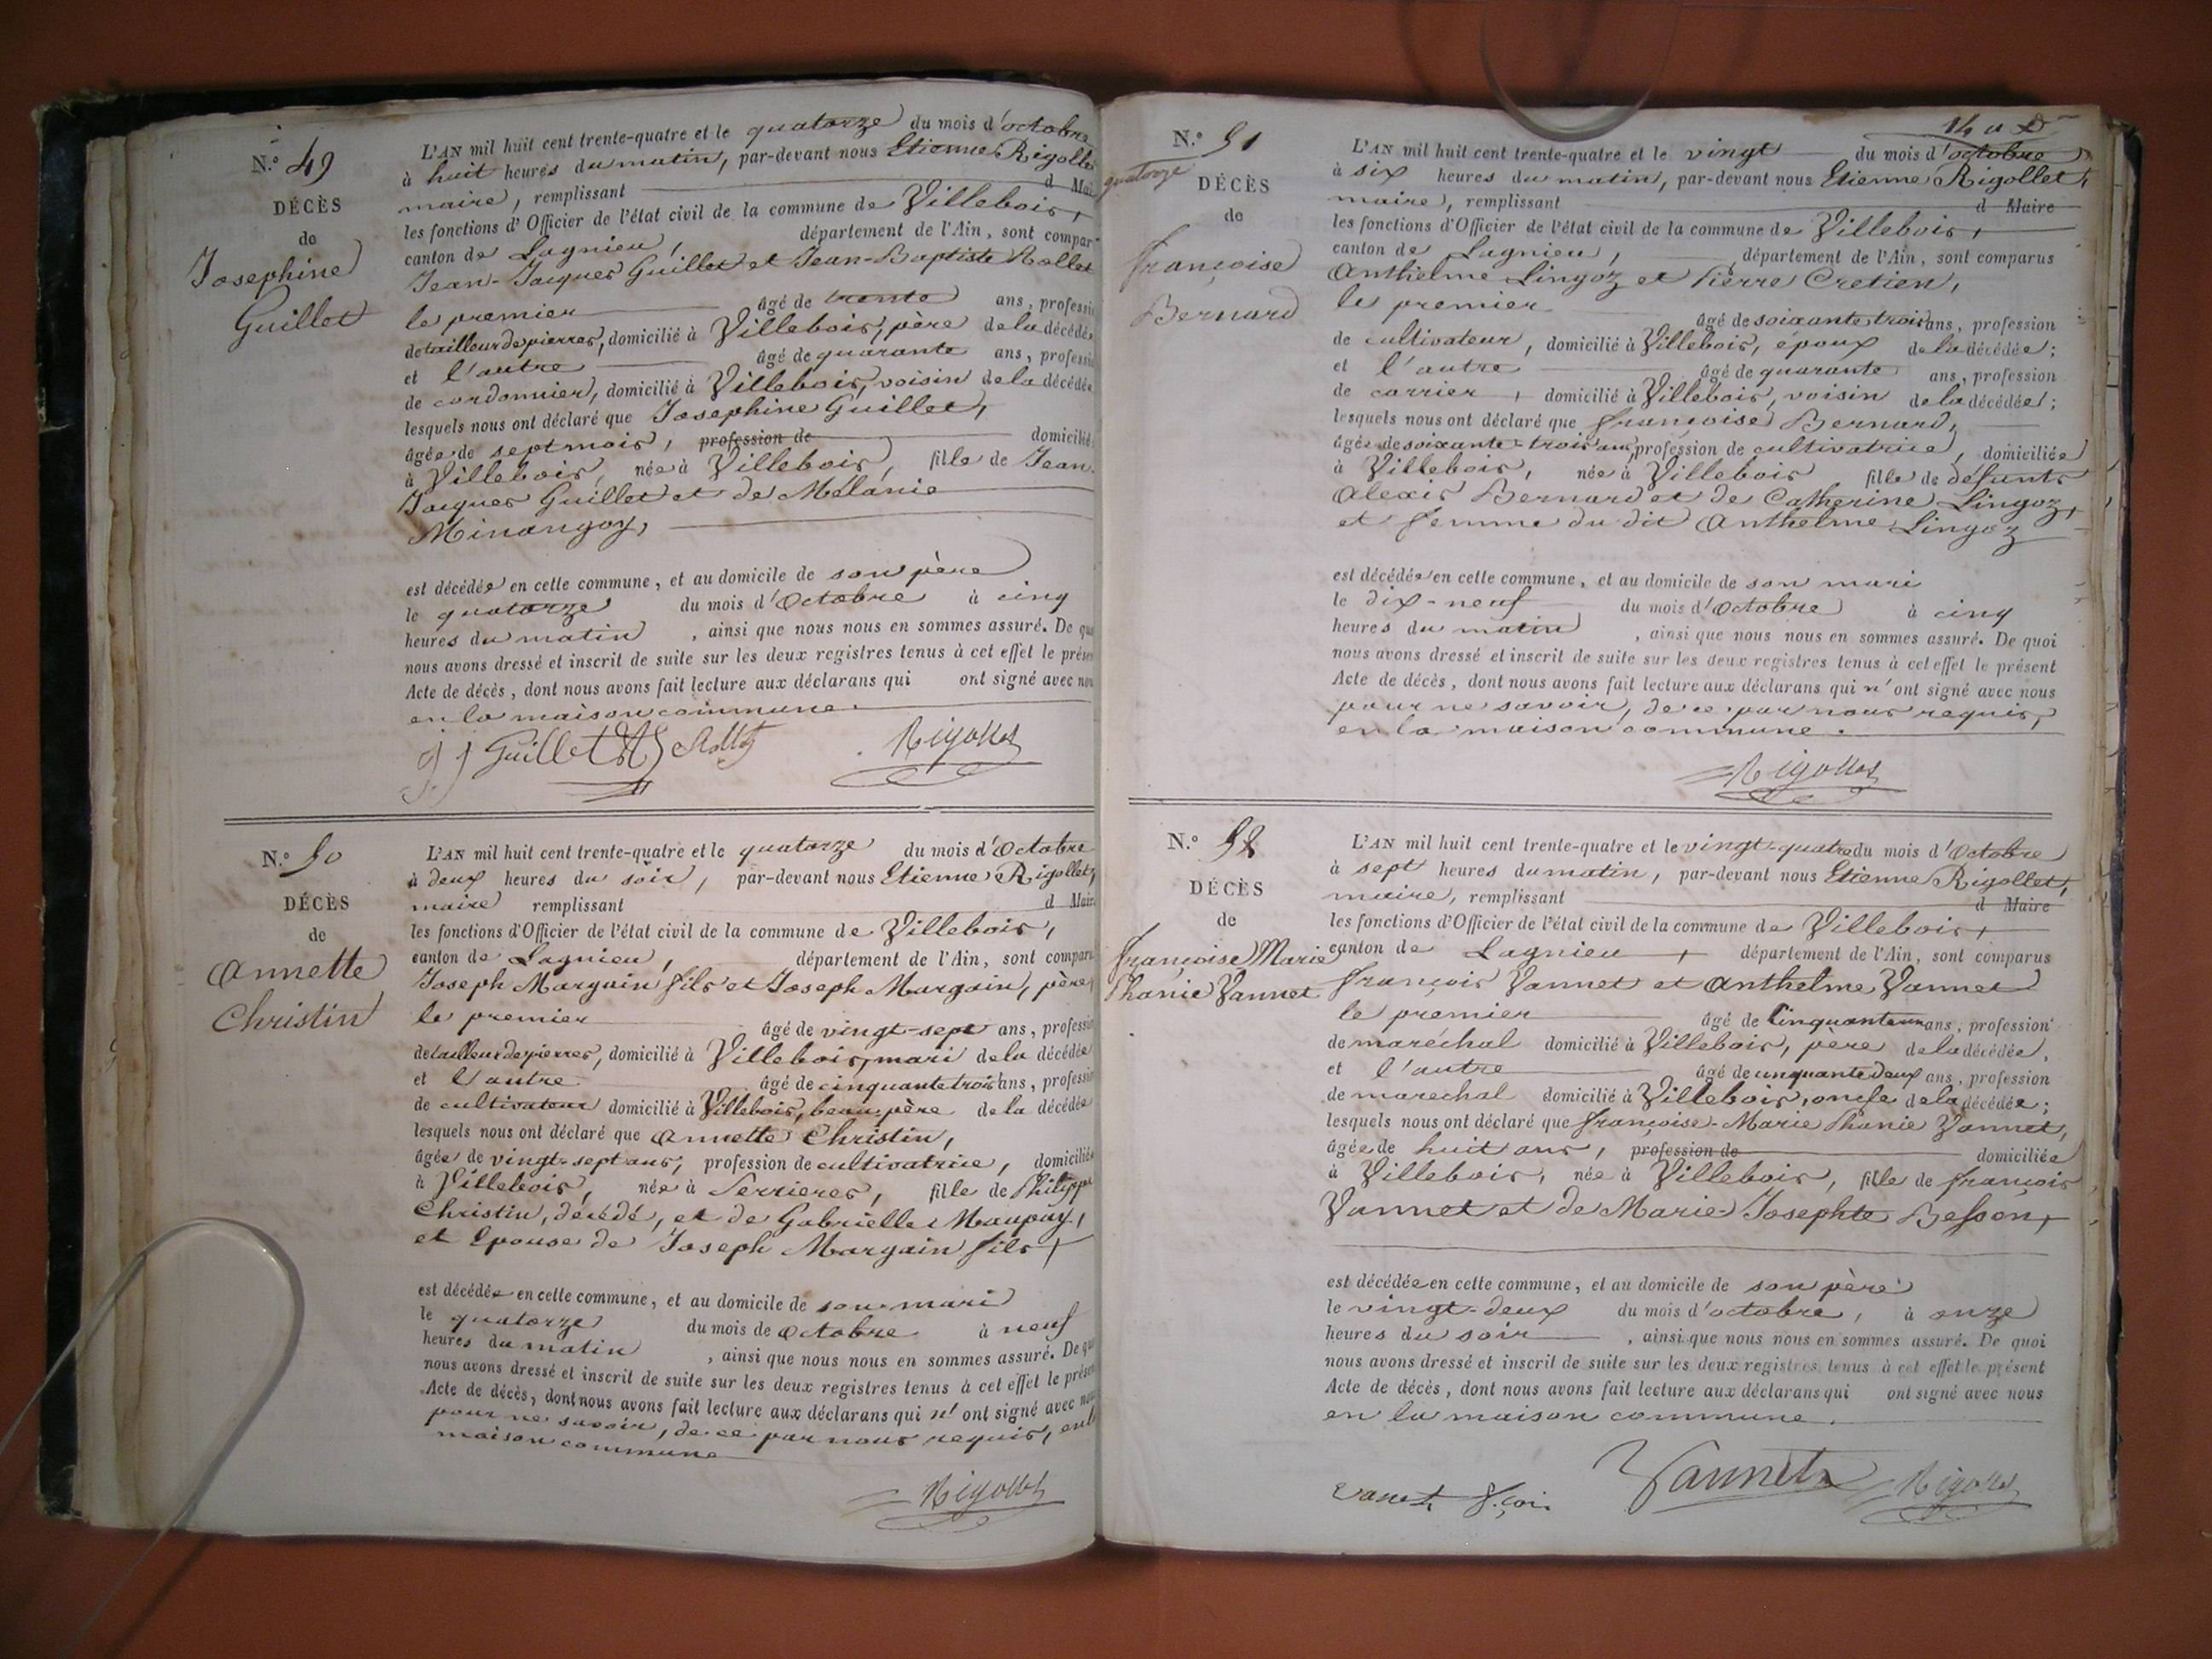 N.º 49
DÉCÈS
de
Josephine
Guillet
L'AN mil huit cent trente-quatre et le quatorze du mois d'octobre
à huit heures du matin, par-devant nous Etienne Rigollet
maire, remplissant d Mai
les fonctions d'Officier de l'état civil de la commune de Villebois,
canton de Lagnieu, département de l'Ain, sont compar
Jean-Jacques Guillet et Jean-Baptiste Rollet
le premier âgé de trente ans, professi
de tailleur de pierres, domicilié à Villebois, père de la décédée
et l'autre âgé de quarante ans, professi
de cordonnier, domicilié à Villebois, voisin de la décédée
lesquels nous ont déclaré que Josephine Guillet,
âgée de sept mois, profession de domicilié
à Villebois, née à Villebois, fille de Jean
Jacques Guillet et de Mélanie
Minangoy,
est décédée en cette commune, et au domicile de son père
le quatorze du mois d'Octobre à cinq
heures du matin, ainsi que nous nous en sommes assuré. De qu
nous avons dressé et inscrit de suite sur les deux registres tenus à cet effet le prése
Acte de décès, dont nous avons fait lecture aux déclarans qui ont signé avec nou
en la maison commune.
j j Guillet Rollet Rigollet
N.º 50
DÉCÈS
de
Annette
Christin
L'AN mil huit cent trente-quatre et le quatorze du mois d'Octobre
à deux heures du soir, par-devant nous Etienne Rigollet,
maire remplissant d Mair
les fonctions d'Officier de l'état civil de la commune de Villebois,
canton de Lagnieu, département de l'Ain, sont compar
Joseph Margain fils et Joseph Margain, père,
le premier âgé de vingt-sept ans, professi
de tailleur de pierres, domicilié à Villebois, mari de la décédée
et l'autre âgé de cinquante trois ans, professi
de cultivateur domicilié à Villebois, beau-père de la décédée
lesquels nous ont déclaré que Annette Christin,
âgée de vingt-sept ans, profession de cultivatrice, domiciliée
à Villebois, née à Serrieres, fille de Philippe
Christin, décédé, et de Gabrielle Maupuy,
et Epouse de Joseph Margain fils,
est décédée en cette commune, et au domicile de son mari
le quatorze du mois de Octobre à neuf
heures du matin, ainsi que nous nous en sommes assuré. De qu
nous avons dressé et inscrit de suite sur les deux registres tenus à cet effet le prése
Acte de décès, dont nous avons fait lecture aux déclarans qui n'ont signé avec nou
pour ne savoir, de ce par nous requis, en la
maison commune
Rigollet
14
N.º 51
quatorze
DÉCÈS
de
Françoise
Bernard
L'AN mil huit cent trente-quatre et le vingt du mois d'octobre
à six heures du matin, par-devant nous Etienne Rigollet,
maire, remplissant d Maire
les fonctions d'Officier de l'état civil de la commune de Villebois,
canton de Lagnieu, département de l'Ain, sont comparus
Anthelme Lingoz et Pierre Cretien,
le premier âgé de soixante trois ans, profession
de cultivateur, domicilié à Villebois, époux de la décédée;
et l'autre âgé de quarante ans, profession
de carrier, domicilié à Villebois, voisin de la décédée;
lesquels nous ont déclaré que Françoise Bernard,
âgée de soixante-trois ans, profession de cultivatrice, domiciliée
à Villebois, née à Villebois fille de défunts
Alexis Bernard et de Catherine Lingoz,
et femme du dit Anthelme Lingoz
est décédée en cette commune, et au domicile de son mari
le dix-neuf du mois d'Octobre à cinq
heures du matin, ainsi que nous nous en sommes assuré. De quoi
nous avons dressé et inscrit de suite sur les deux registres tenus à cet effet le présent
Acte de décès, dont nous avons fait lecture aux déclarans qui n'ont signé avec nous
pour ne savoir, de ce par nous requis,
en la maison commune.
Rigollet
N.º 52
DÉCÈS
de
Françoise Marie
Phanie Vannet
L'AN mil huit cent trente-quatre et le vingt-quatre du mois d'Octobre
à sept heures du matin, par-devant nous Etienne Rigollet,
maire, remplissant d Maire
les fonctions d'Officier de l'état civil de la commune de Villebois,
canton de Lagnieu, département de l'Ain, sont comparus
François Vannet et Anthelme Vannet
le premier âgé de Cinquante un ans, profession
de maréchal domicilié à Villebois, père de la décédée,
et l'autre âgé de cinquante deux ans, profession
de marechal domicilié à Villebois, oncle de la décédée;
lesquels nous ont déclaré que Françoise-Marie Phanie Vannet,
âgée de huit ans, profession de domiciliée
à Villebois, née à Villebois, fille de François
Vannet et de Marie Josephte Besson,
est décédée en cette commune, et au domicile de son père
le vingt-deux du mois d'octobre, à onze
heures du soir, ainsi que nous nous en sommes assuré. De quoi
nous avons dressé et inscrit de suite sur les deux registres tenus à cet effet le présent
Acte de décès, dont nous avons fait lecture aux déclarans qui ont signé avec nous
en la maison commune.
Vannet Rigollet